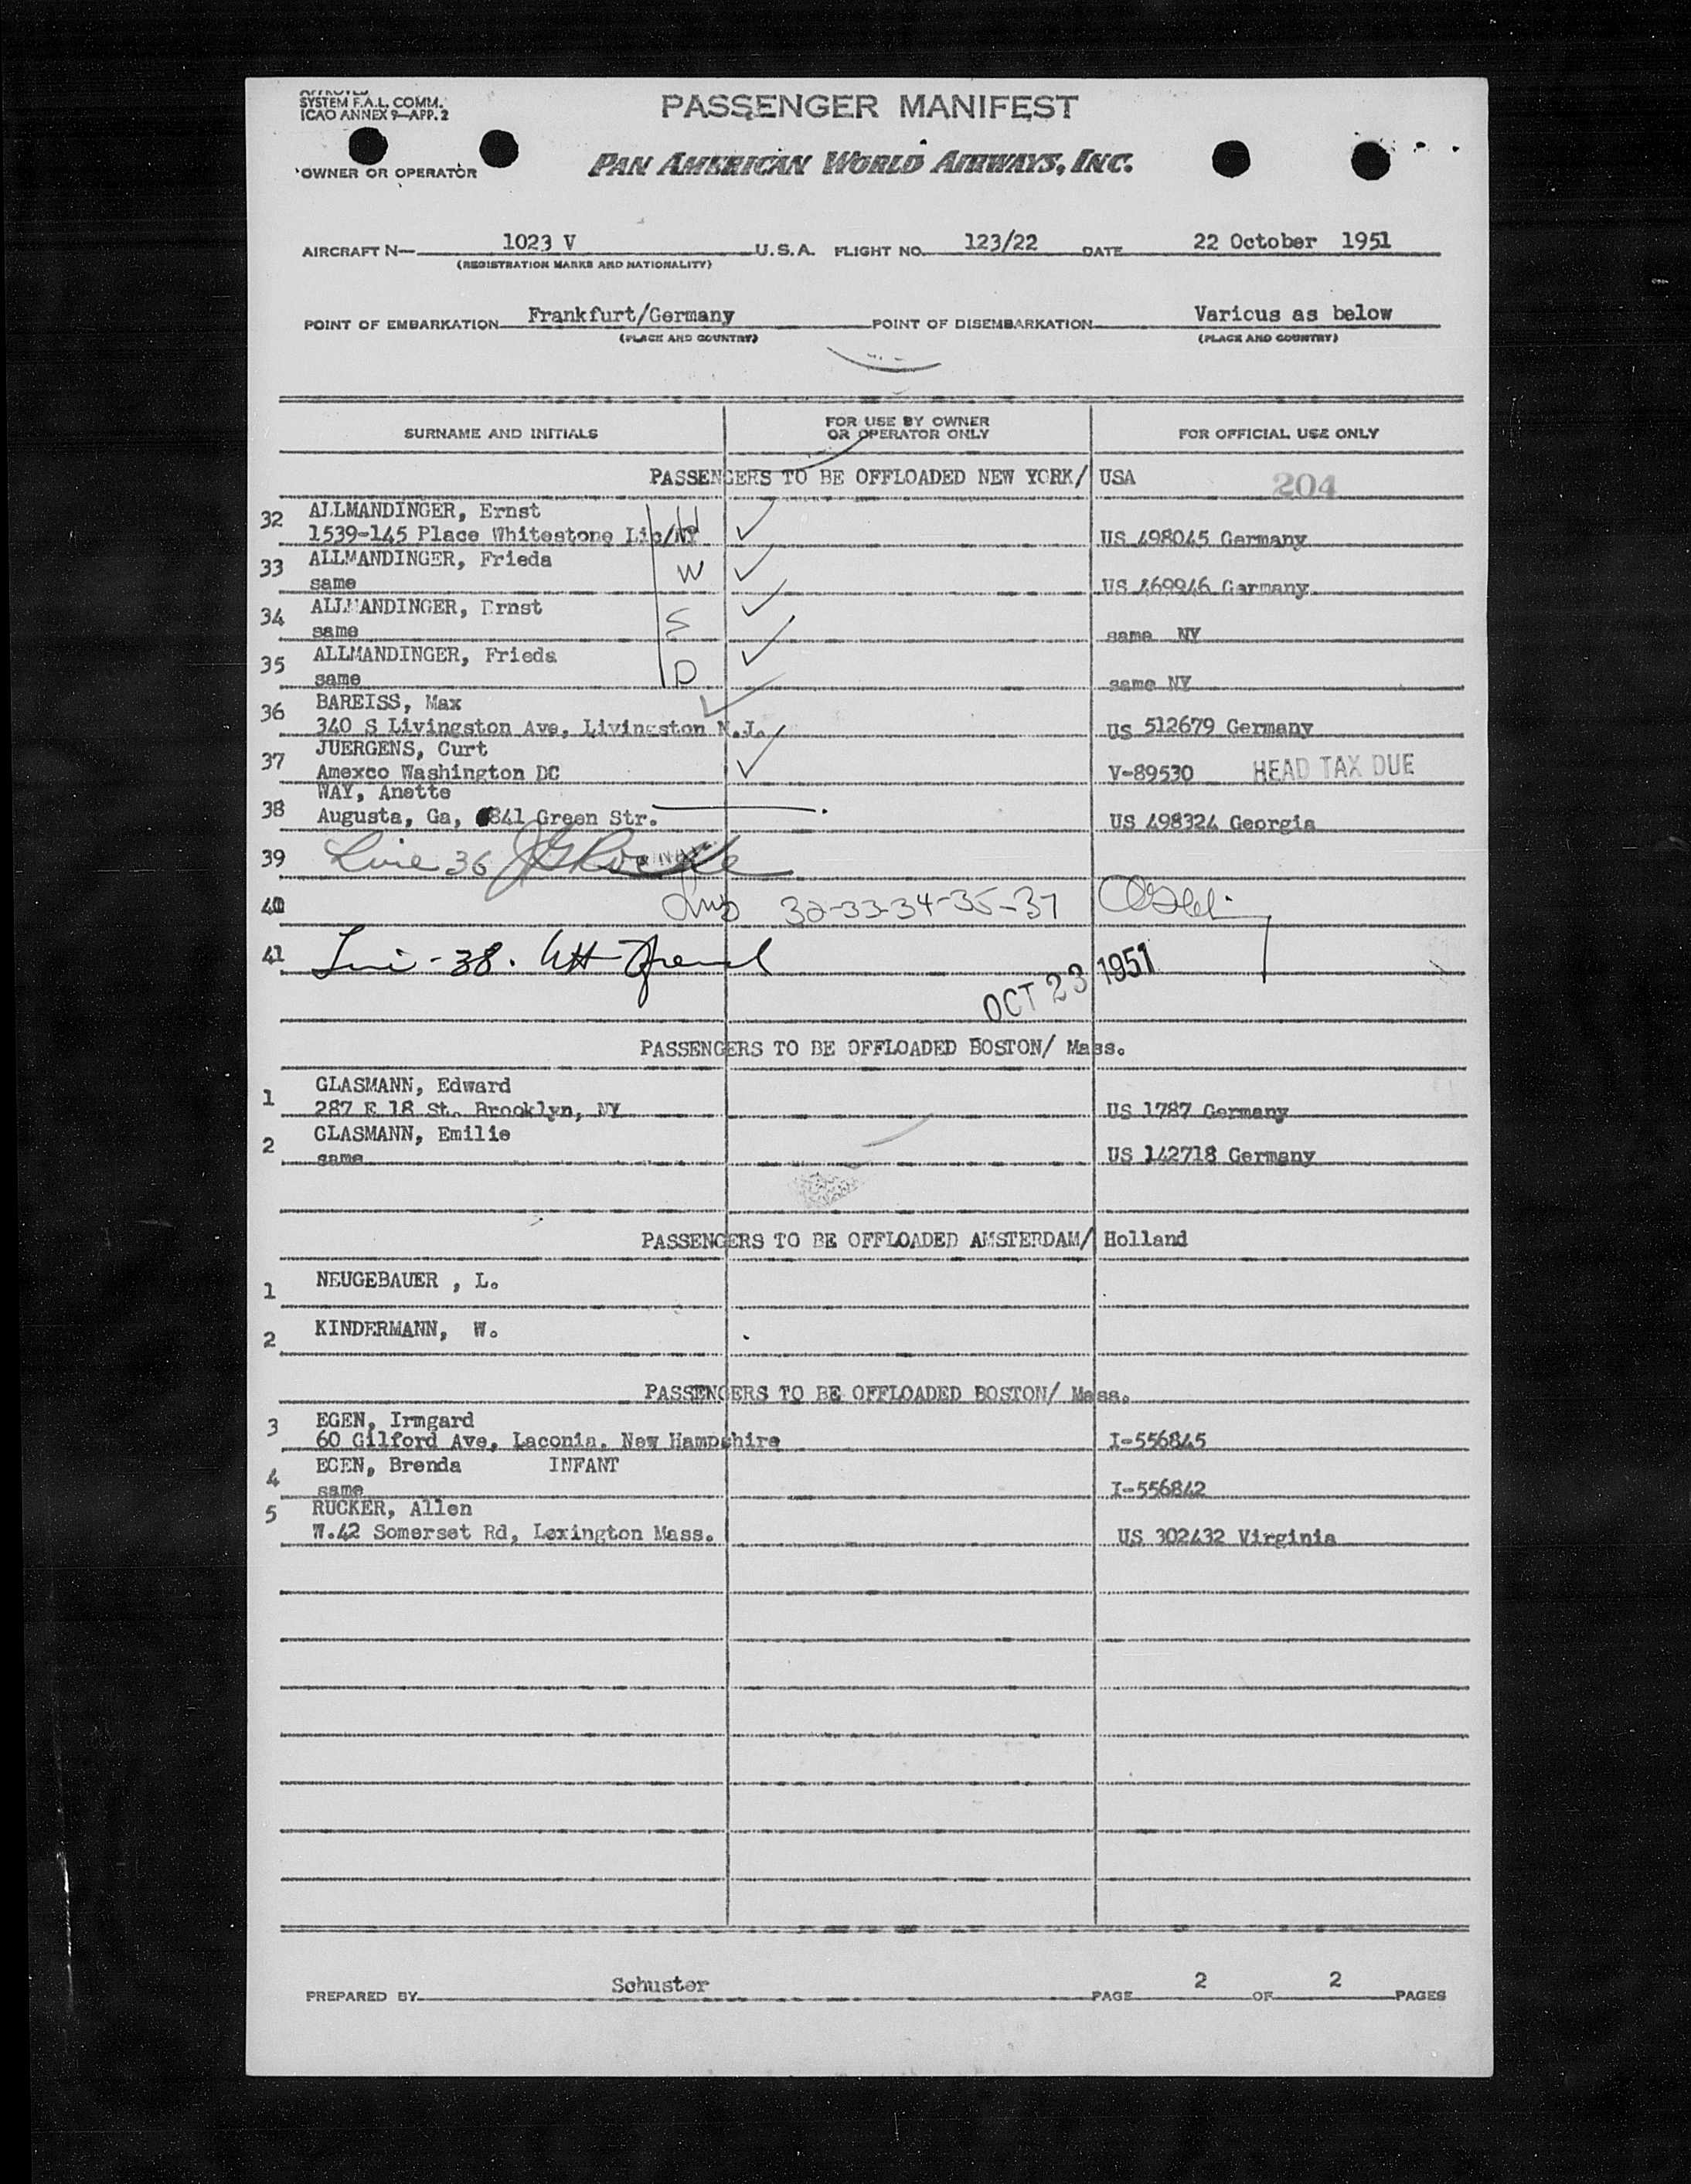 APPROVED
SYSTEM F.A.L. COMM.
ICAO ANNEX 9—APP. 2
PASSENGER MANIFEST
OWNER OR OPERATOR
PAN AMERICAN WORLD AIRWAYS, INC.
AIRCRAFT N— 1023 V U.S.A. FLIGHT NO. 123/22 DATE 22 October 1951
(REGISTRATION MARKS AND NATIONALITY)
POINT OF EMBARKATION Frankfurt/Germany POINT OF DISEMBARKATION Various as below
(PLACE AND COUNTRY) (PLACE AND COUNTRY)
SURNAME AND INITIALS FOR USE BY OWNER OR OPERATOR ONLY FOR OFFICIAL USE ONLY
PASSENGERS TO BE OFFLOADED NEW YORK/ USA 204
32 ALLMANDINGER, Ernst H
1539-145 Place Whitestone Lic/NY US 498045 Germany
33 ALLMANDINGER, Frieda W
same US 469946 Germany
34 ALLMANDINGER, Ernst S
same same NY
35 ALLMANDINGER, Frieda D
same same NY
36 BAREISS, Max
340 S Livingston Ave, Livingston N.J. US 512679 Germany
37 JUERGENS, Curt
Amexco Washington DC V-89530 HEAD TAX DUE
38 WAY, Anette
Augusta, Ga, 841 Green Str. US 498324 Georgia
39 Line 36
40 32-33-34-35-37
41 Line - 38.
OCT 23 1951
PASSENGERS TO BE OFFLOADED BOSTON/ Mass.
1 GLASMANN, Edward
287 E 18 St. Brooklyn, NY US 1787 Germany
2 GLASMANN, Emilie
same US 142718 Germany
PASSENGERS TO BE OFFLOADED AMSTERDAM/ Holland
1 NEUGEBAUER , L.
2 KINDERMANN, W.
PASSENGERS TO BE OFFLOADED BOSTON/ Mass.
3 EGEN, Irmgard
60 Gilford Ave, Laconia, New Hampshire I-556845
4 EGEN, Brenda INFANT
same I-556842
5 RUCKER, Allen
W.42 Somerset Rd, Lexington Mass. US 302432 Virginia
PREPARED BY Schuster PAGE 2 OF 2 PAGES